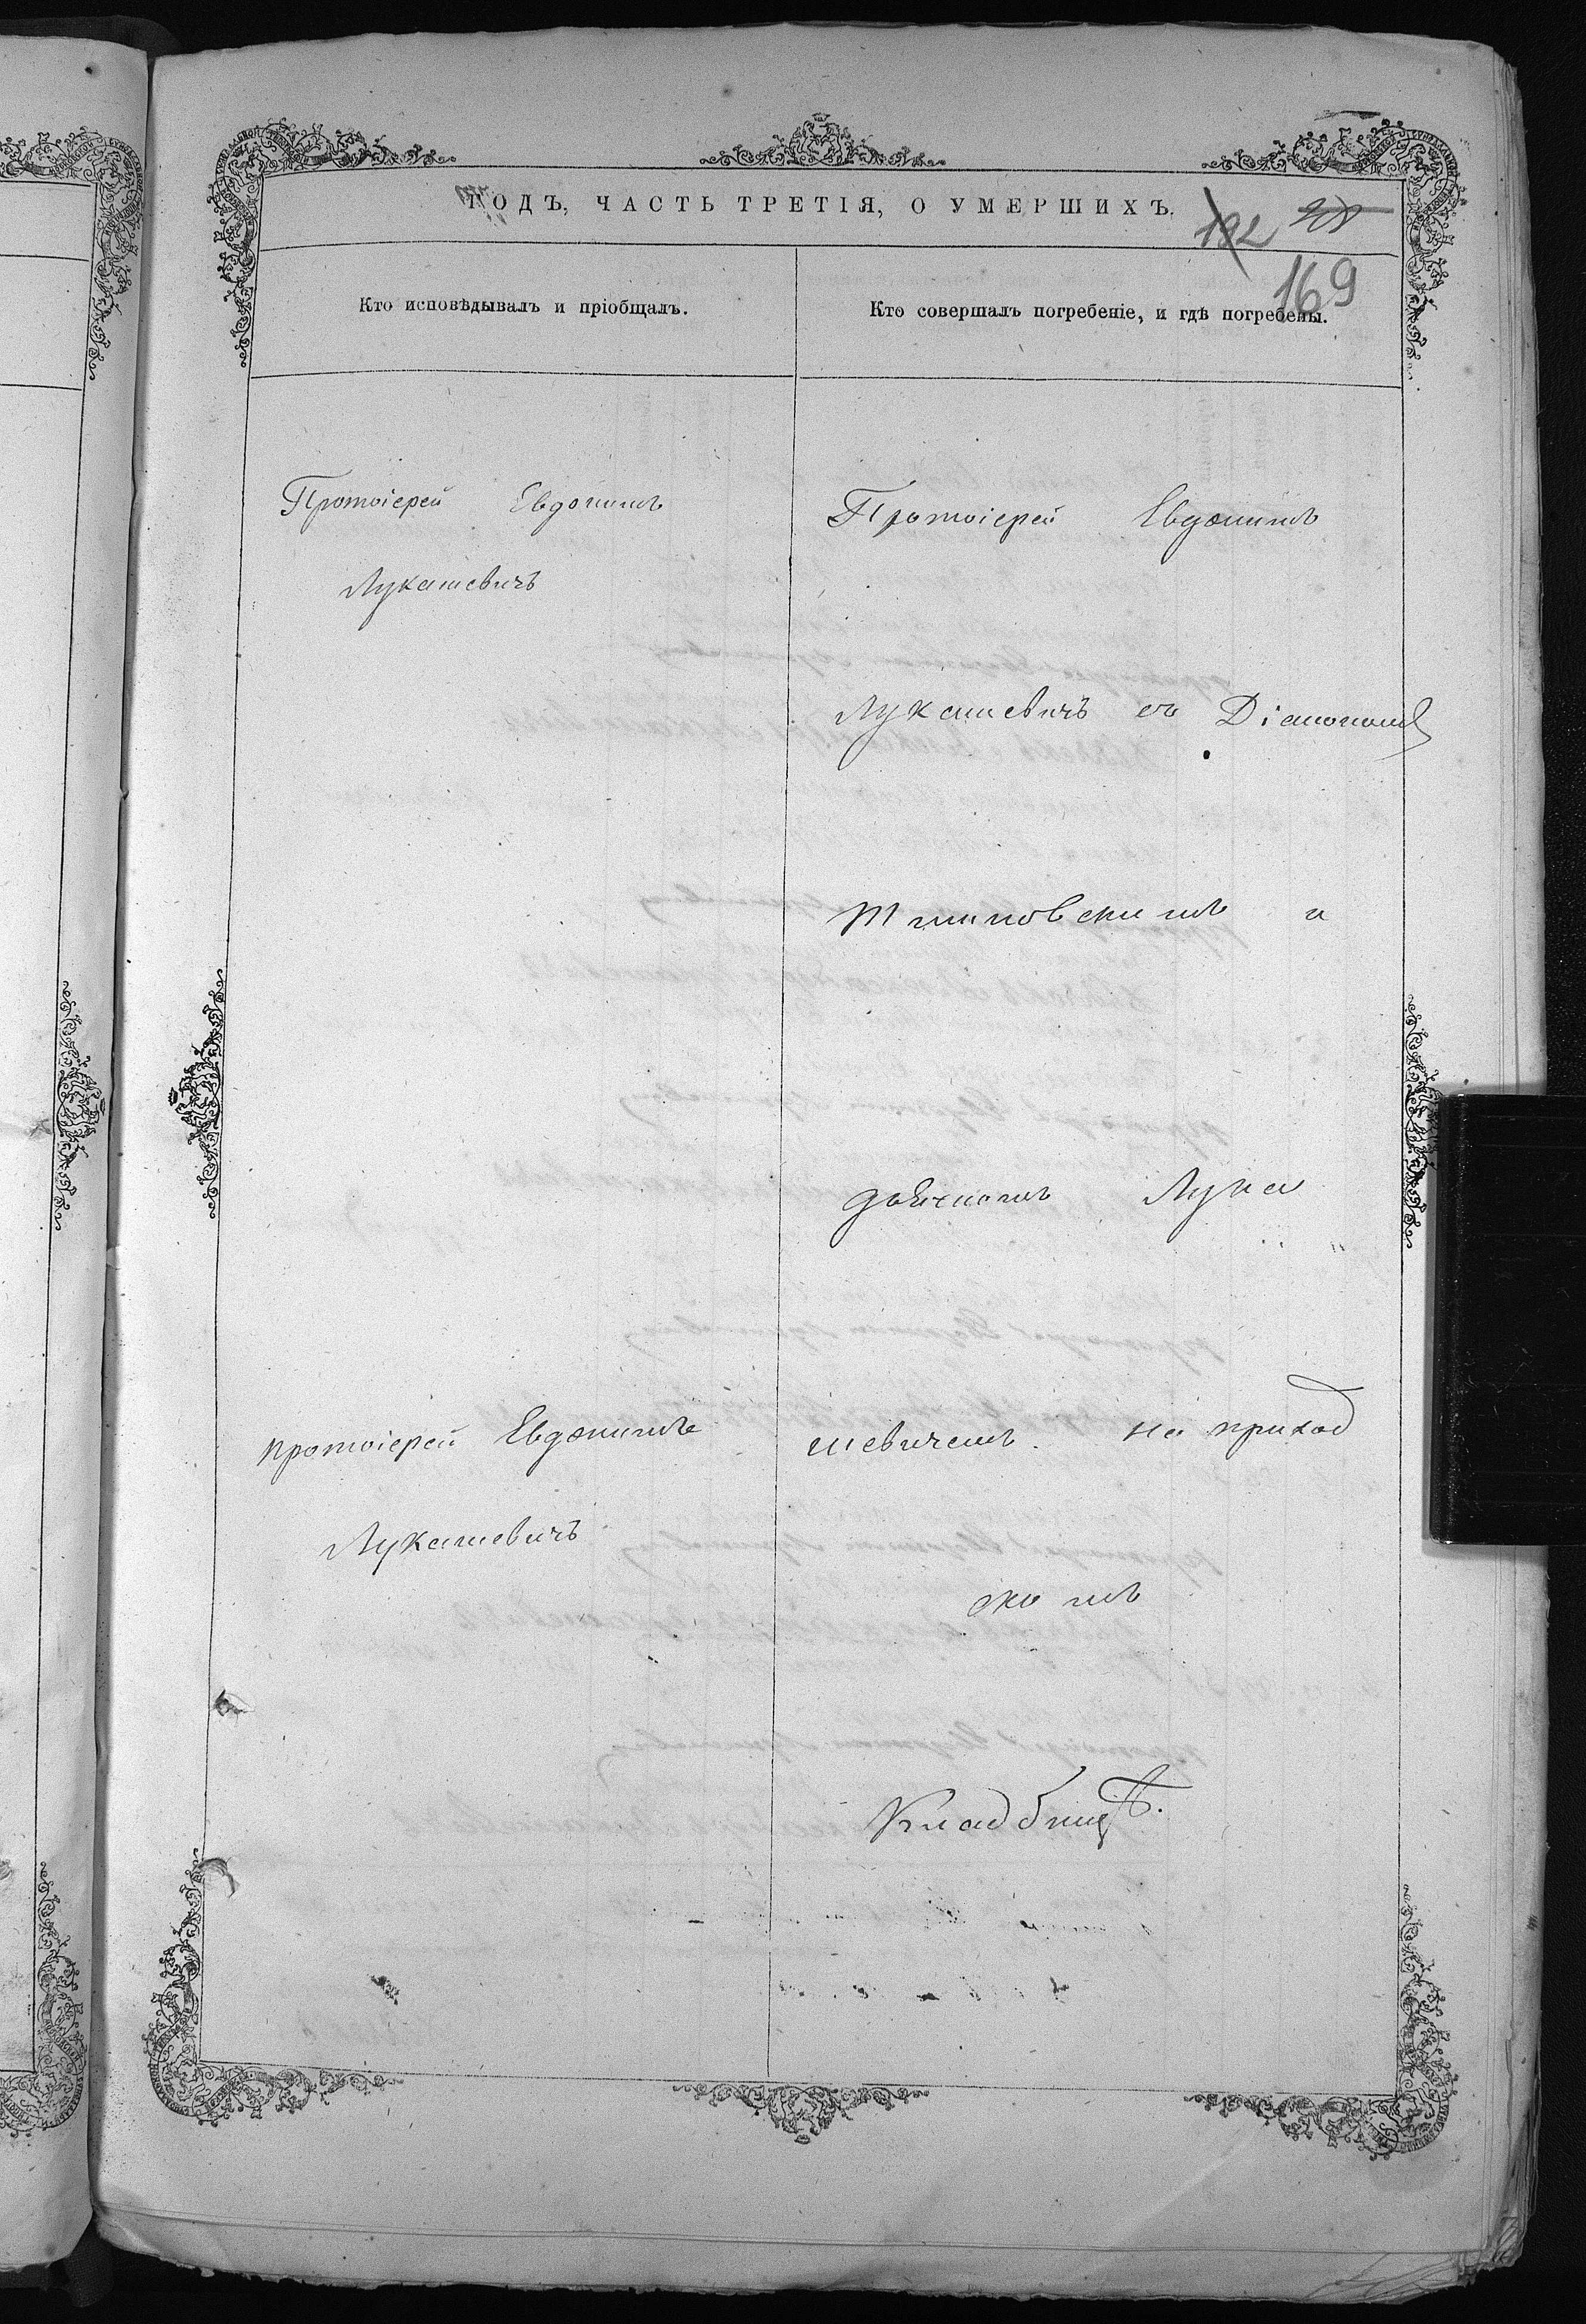 ГОДЪ, ЧАСТЬ ТРЕТІЯ, О УМЕРШИХЪ.
192
169
Кто исповѣдывалъ и пріобщалъ.
Кто совершалъ погребеніе, и гдѣ погребены.
Протоіерей Евдокимъ
Лукашевичъ
протоіерей Евдокимъ
Лукашевичъ
Протоіерей Евдокимъ
Лукашевичъ съ Діакономъ
и
дьячкомъ Лука
шевичемъ. на приход
скомъ
Кладбищѣ.